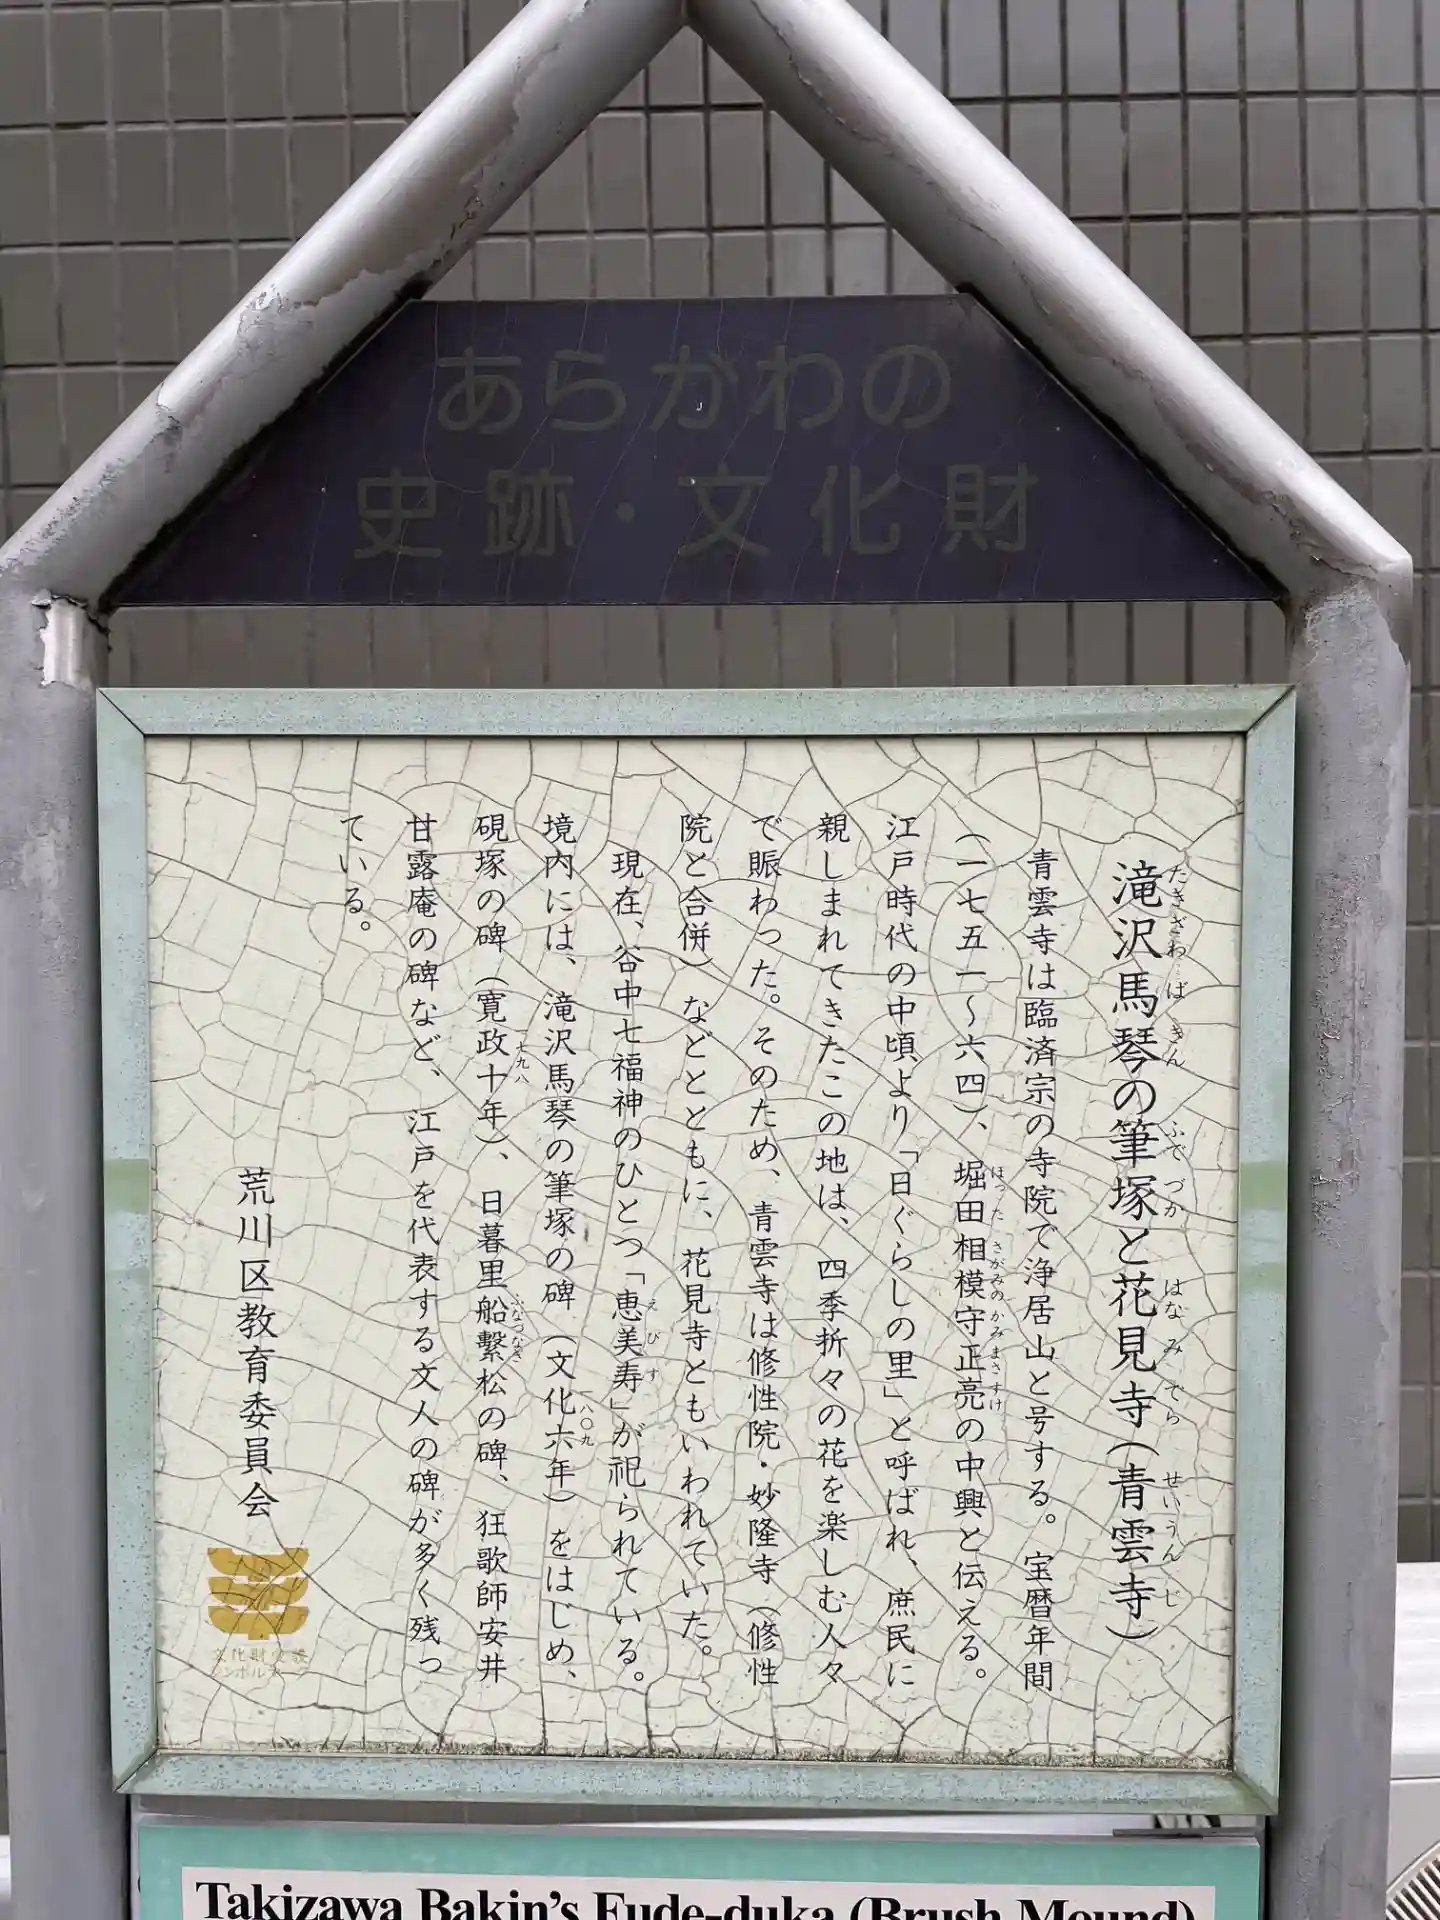 あらかわの
史跡・文化財
滝沢馬琴の筆塚と花見寺(青雲寺)
たきざわばきん ふでづか はなみでら せいうんじ
青雲寺は臨済宗の寺院で浄居山と号する。宝暦年間
(一七五一〜六四)、堀田相模守正亮の中興と伝える。
ほった さがみのかみまさすけ
江戸時代の中頃より「日ぐらしの里」と呼ばれ、庶民に
親しまれてきたこの地は、四季折々の花を楽しむ人々
で賑わった。そのため、青雲寺は修性院・妙隆寺(修性
院と合併)などとともに、花見寺ともいわれていた。
現在、谷中七福神のひとつ「恵美寿」が祀られている。
えびす
境内には、滝沢馬琴の筆塚の碑(文化六年)をはじめ、
一八〇九
硯塚の碑(寛政十年)、日暮里船繋松の碑、狂歌師安井
一七九八 ふなつなぎ
甘露庵の碑など、江戸を代表する文人の碑が多く残っ
ている。
荒川区教育委員会
文化財愛護
シンボルマーク
Takizawa Bakin's Fude-duka (Brush Mound)